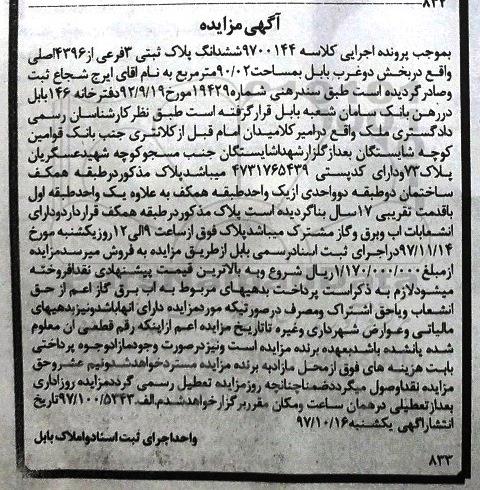 ۸۳۲
آگهی مزایده
بموجب پرونده اجرایی کلاسه ۹۷۰۰۱۴۴ششدانگ پلاک ثبتی ۳فرعی از۴۳۹۶اصلی
واقع دربخش دوغرب بابل بمساحت۹۰/۰۲مترمربع به نام اقای ایرج شجاع ثبت
وصادرگردیده است طبق سندرهنی شماره۱۹۴۲۹مورخ۹۲/۹/۱۹دفترخانه ۱۴۶بابل
دررهن بانک سامان شعبه بابل قرارگرفته است طبق نظرکارشناسان رسمی
دادگستری ملک واقع درامیرکلامیدان امام قبل ازکلانتری جنب بانک قوامین
کوچه شایستگان بعدازگلزارشهداشایستگان جنب مسجدکوچه شهیدعسگریان
پلاک۷۳ودارای کدپستی ۴۷۳۱۷۶۵۴۳۹ میباشدپلاک مذکوردرطبقه همکف
ساختمان دوطبقه دوواحدی ازیک واحدطبقه همکف به علاوه یک واحدطبقه اول
باقدمت تقریبی ۱۷سال بناگردیده است پلاک مذکوردرطبقه همکف قرارداردودارای
انشعابات اب وبرق وگاز مشترک میباشدپلاک فوق ازساعت ۹الی۱۲روزیکشنبه مورخ
۹۷/۱۱/۱۴دراجرای ثبت اسنادرسمی بابل ازطریق مزایده به فروش میرسدمزایده
ازمبلغ۱/۱۷۰/۰۰۰/۰۰۰ریال شروع وبه بالاترین قیمت پیشنهادی نقدافروخته
میشودلازم به ذکراست پرداخت بدهیهای مربوط به اب برق گاز اعم از حق
انشعاب ویاحق اشتراک ومصرف درصورتیکه موردمزایده دارای انهاباشدونیزبدهیهای
مالیاتی وعوارض شهرداری وغیره تاتاریخ مزایده اعم ازاینکه رقم قطعی ان معلوم
شده یانشده باشدبعهده برنده مزایده است ونیزدرصورت وجودمازادوجوه پرداختی
بابت هزینه های فوق ازمحل مازادبه برنده مزایده مستردخواهدشدونیم عشروحق
مزایده نقداوصول میگرددضمناچنانچه روزمزایده تعطیل رسمی گرددمزایده روزاداری
بعدازتعطیلی درهمان ساعت ومکان مقرربرگزارخواهدشدم.الف.۹۷/۱۰۰/۵۲۴۳تاریخ
انتشاراگهی یکشنبه۹۷/۱۰/۱۶
واحداجرای ثبت اسنادواملاک بابل
۸۳۳